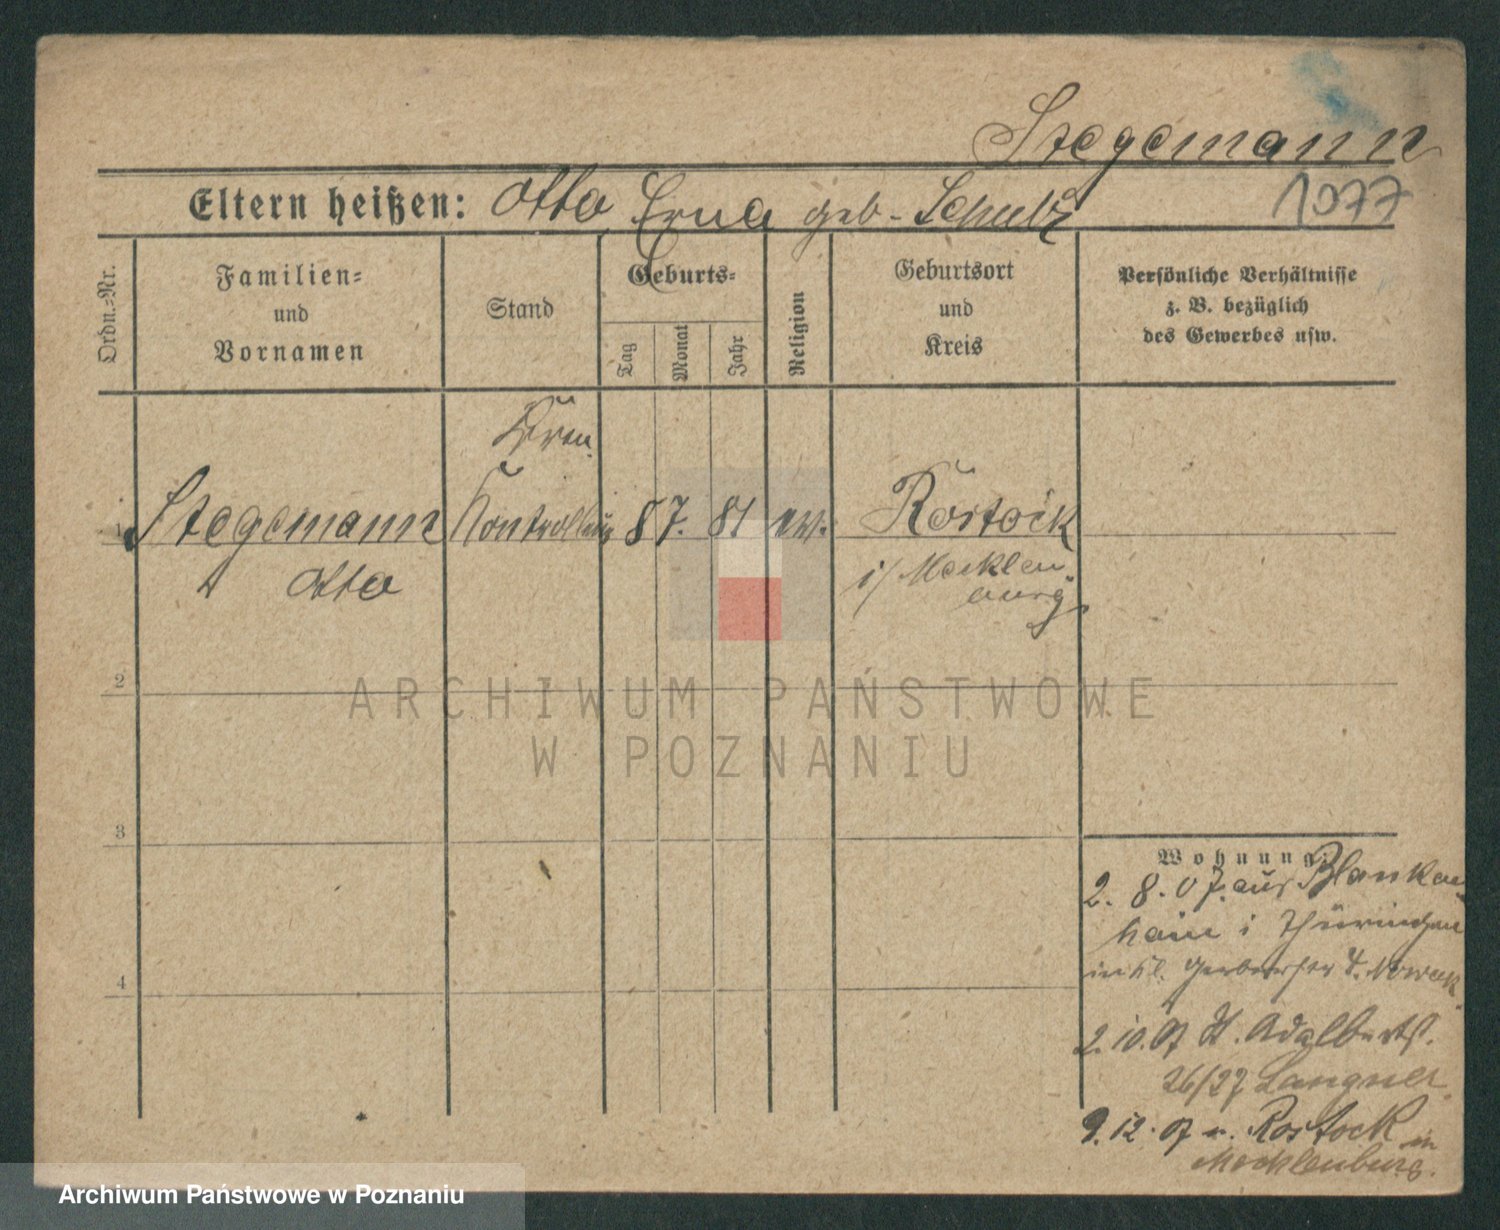 Stegemann
1077
Eltern heißen: Otto Erna geb. Schulz
Ordn.-Nr.
Familien-
und
Vornamen
Stand
Geburts-
Tag
Monat
Jahr
Religion
Geburtsort
und
Kreis
Persönliche Verhältnisse
z. B. bezüglich
des Gewerbes usw.
1 Stegemann 8 7. 81 ev. Rostock
Otto
i/ Mecklen
burg
2
3
4
ARCHIWUM PAŃSTWOWE
W POZNANIU
Wohnung:
2. 8. 07. aus Blanken
hain i Thüringen
Gerberstr 4. Nowak
2. 10. 07 St. Adalbertst.
26/27 Langner
9. 12. 07 n. Rostock in
Mecklenburg.
Archiwum Państwowe w Poznaniu